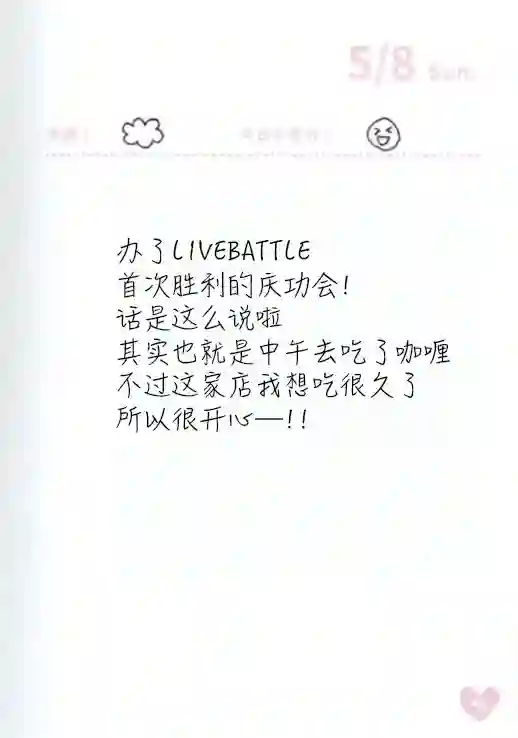 5/8 Sun.
办了LIVEBATTLE
首次胜利的庆功会!
话是这么说啦
其实也就是中午去吃了咖喱
不过这家店我想吃很久了
所以很开心—!!